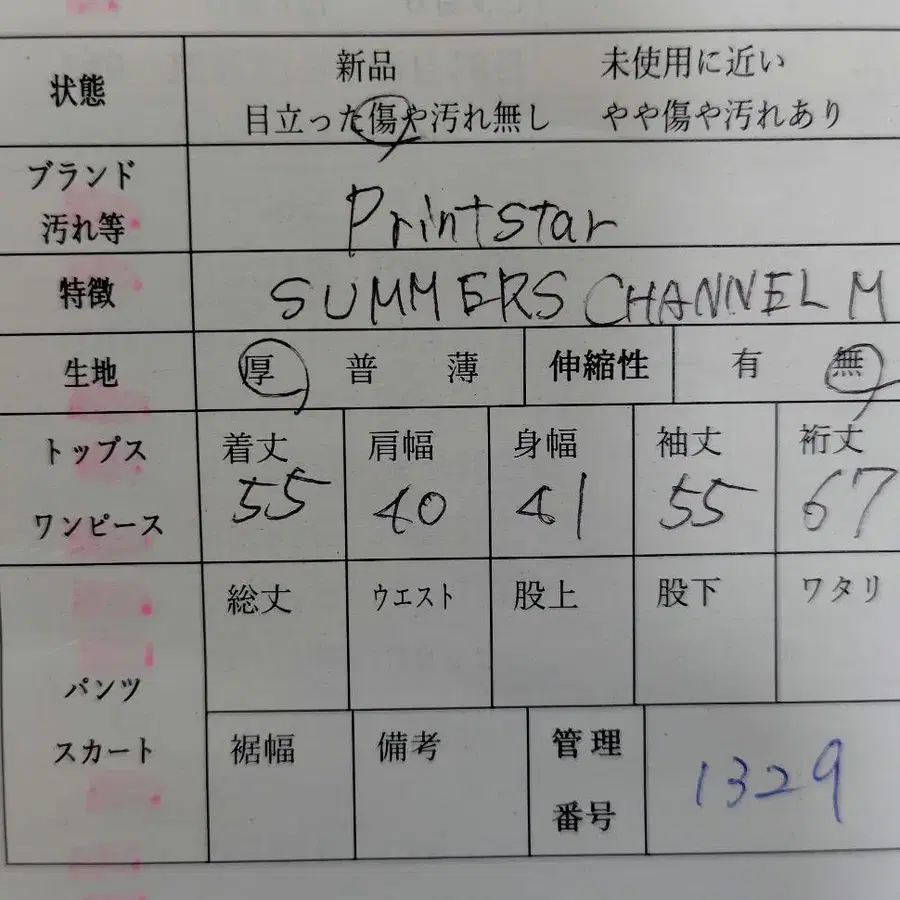 状態
新品 未使用に近い
目立った傷や汚れ無し やや傷や汚れあり
ブランド
汚れ等
Printstar
特徴
SUMMERS CHANNEL M
生地
厚 普 薄
伸縮性
有 無
トップス
ワンピース
着丈 肩幅 身幅 袖丈 裄丈
55 40 41 55 67
パンツ
スカート
総丈 ウエスト 股上 股下 ワタリ
裾幅 備考
管理
番号
1329